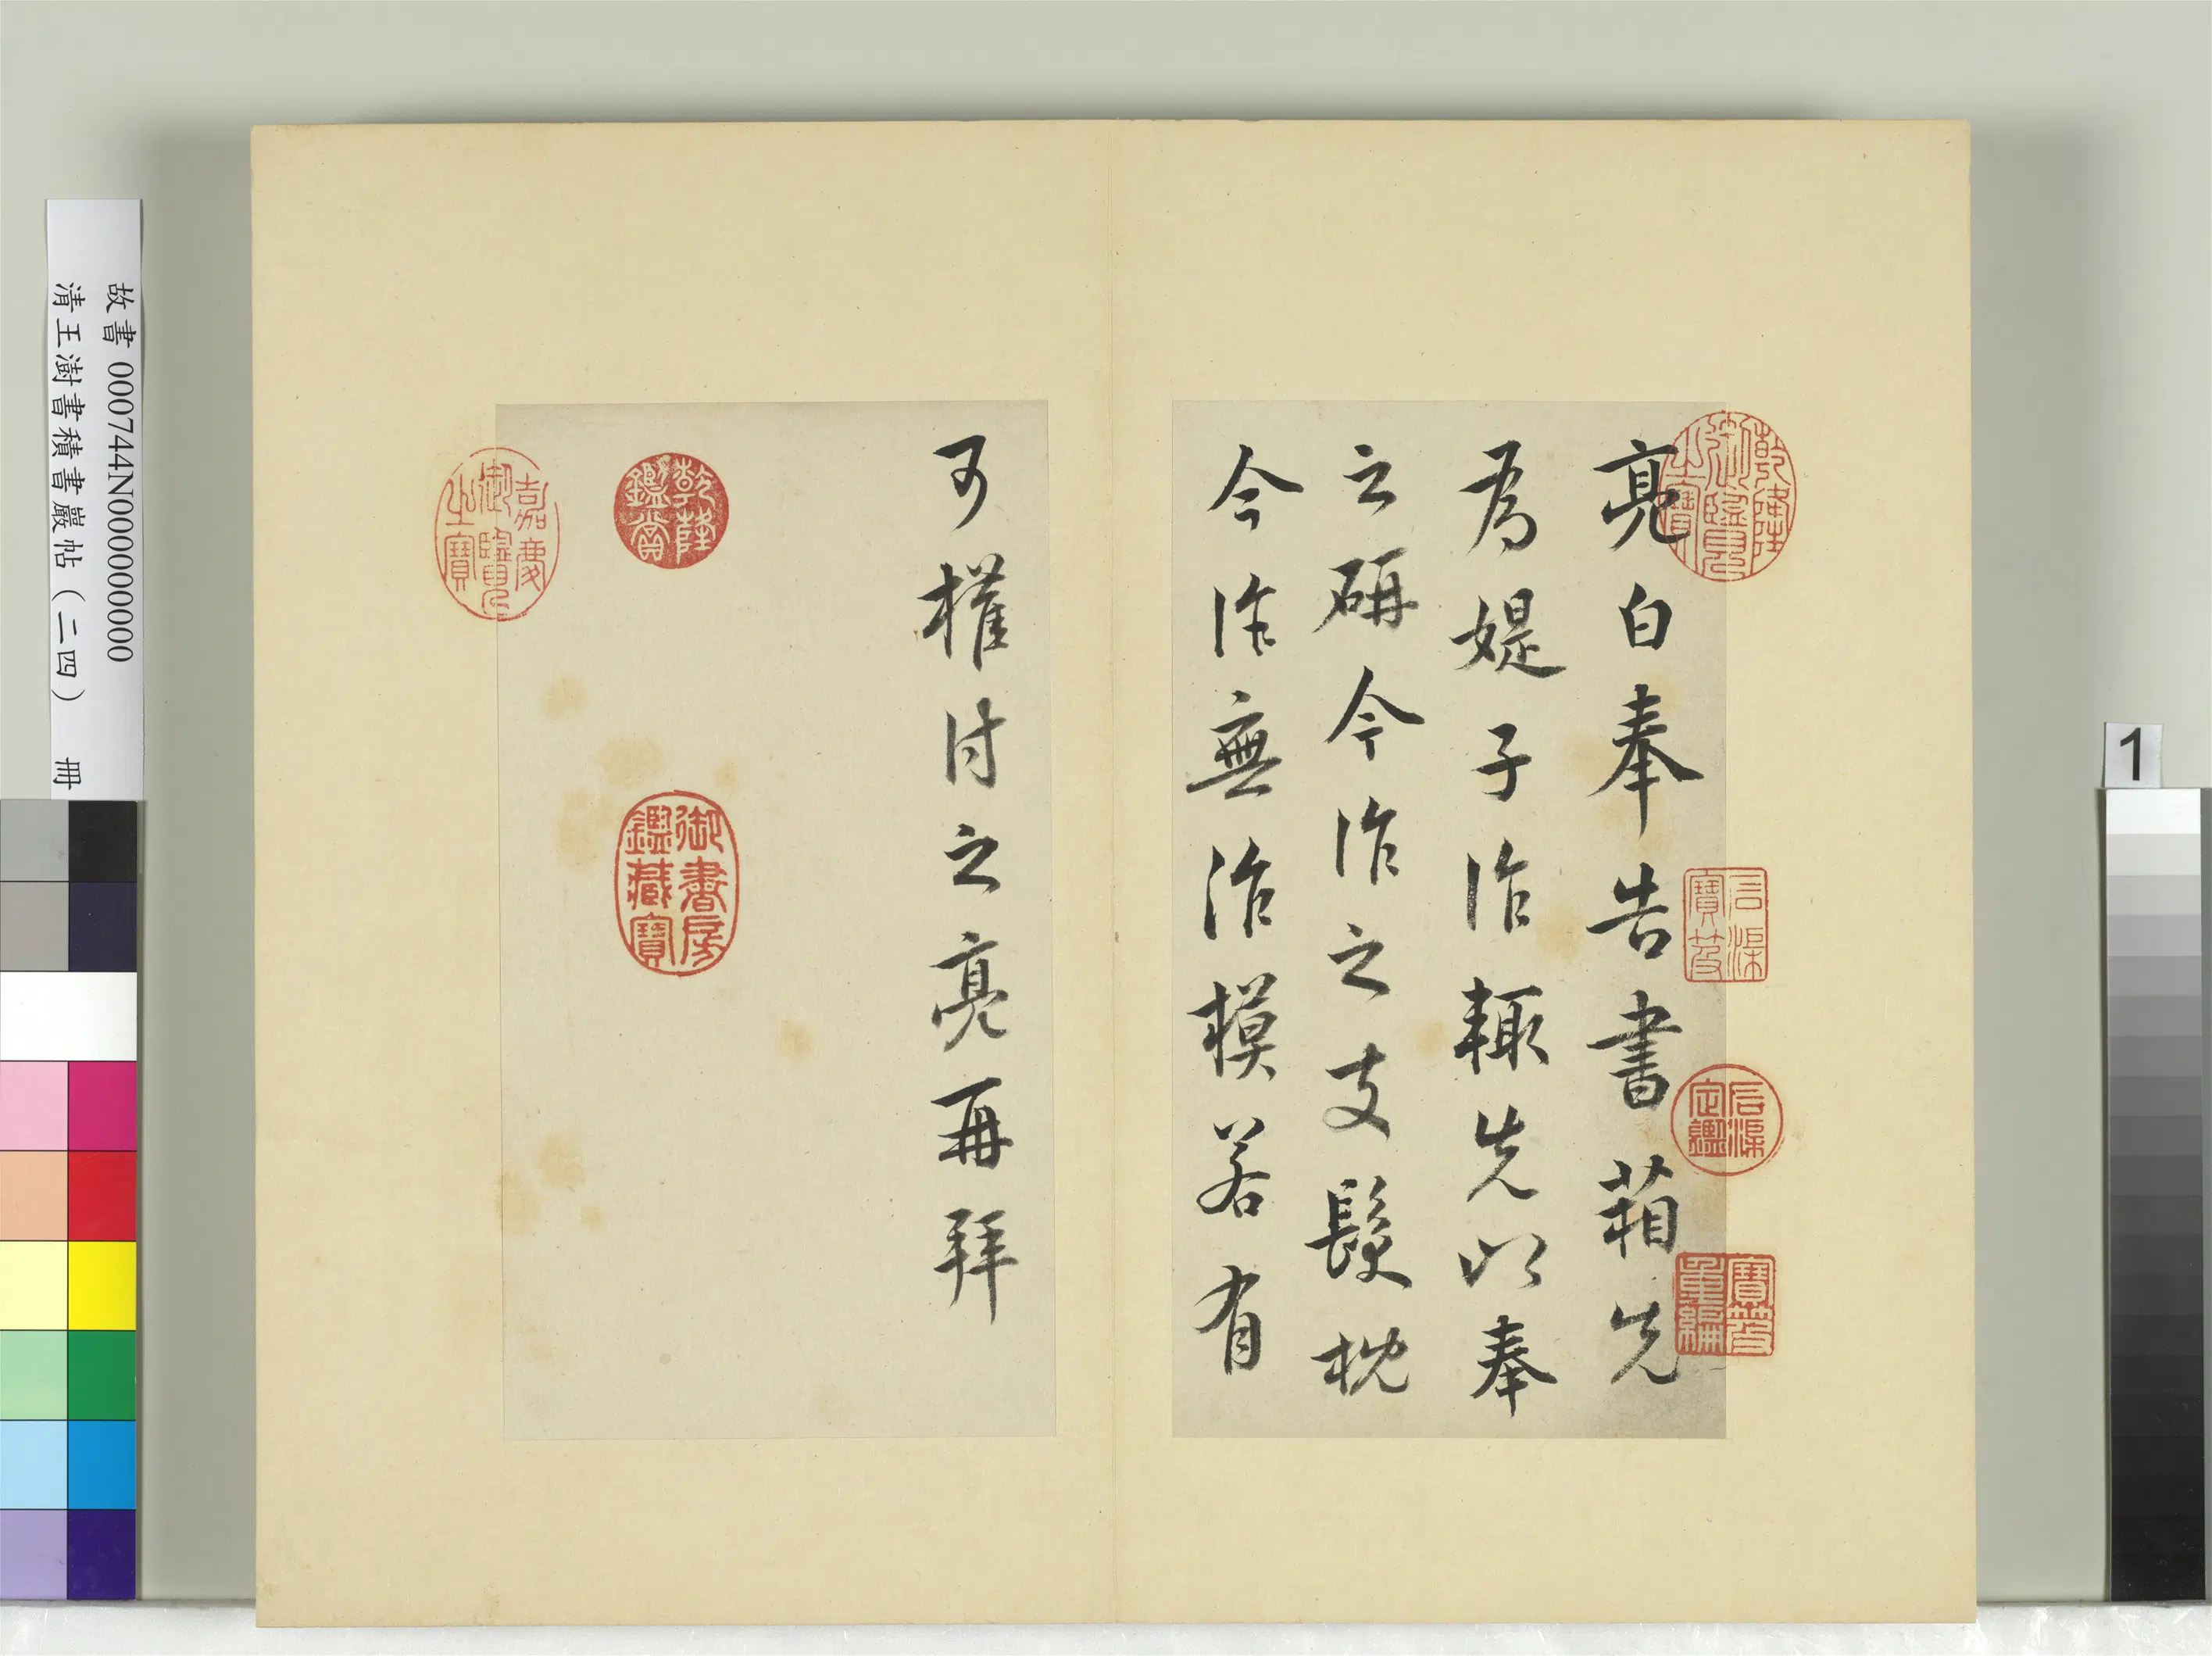 亮白奉告書箱先
為媞子作輙先以奉
之硏今作之支髮枕
今作無治模若有
可權付之亮再拜
乾隆御覽之寶
石渠寶笈
石渠定鑑
寶笈重編
乾隆鑑賞
御書房鑑藏寶
嘉慶御覽之寶
故書 000744N000000000
清王澍書積書巖帖（二四） 冊
1